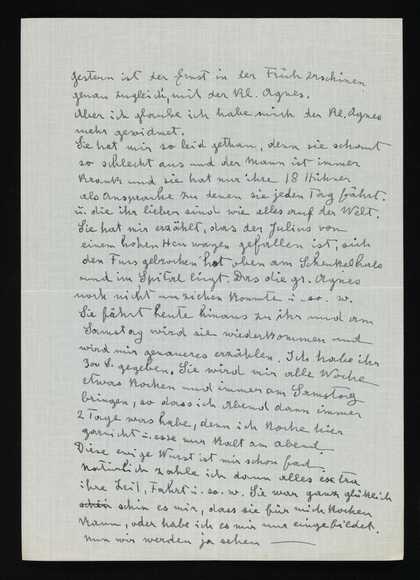 Gestern ist der Ernst in der Früh erschinen
genau zugleich, mit der Kl. Agnes.
Aber ich glaube ich habe mich der Kl. Agnes
mehr gewidmet.
Sie hat mir so leid gethan, denn sie schaut
so schlecht aus und der Mann ist immer
krank und sie hat nur ihre 18 Hühner
als Ansprache zu denen sie jeden Tag fährt.
u. die ihr lieber sind wie alles auf der Welt.
Sie hat mir erzählt, das der Julius von
einem hohen Heuwagen gefallen ist, sich
den Fuss gebrochen hat oben am Schenkelhals
und im Spital liegt. Das die gr. Agnes
noch nicht umziehen konnte u. so. w.
Sie fährt heute hinaus zu ihr und am
Samstag wird sie wiederkommen und
wird mir genaueres erzählen. Ich habe ihr
300 S. gegeben. Sie wird mir alle Woche
etwas kochen und immer am Samstag
bringen, so dass ich Abend dann immer
2 Tage was habe, denn ich koche hier
garnicht u. esse nur kalt am Abend.
Diese ewige Wurst ist mir schon fad.
Natürlich zahle ich dann alles extra
ihre Zeit, Fahrt u. so. w. Sie war ganz glücklich
schin es mir, dass sie für mich kochen
kann, oder habe ich es mir nur eingebildet.
Nun wir werden ja sehen